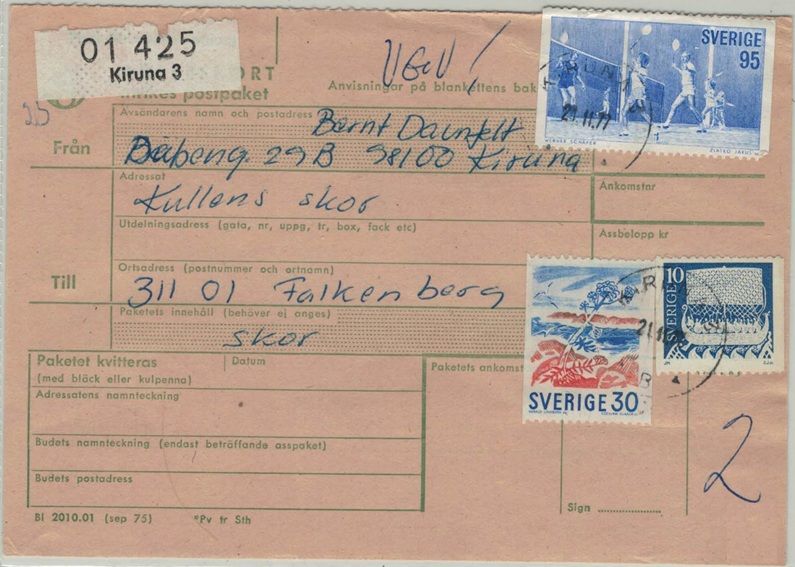 01 425
Kiruna 3
ORT
Inrikes postpaket
VGV!
Anvisningar på blankettens bak
25
Från
Avsändarens namn och postadress
Bernt Daunfelt
29B 98100 Kiruna
Adressat
Kullens skor
Utdelningsadress (gata, nr, uppg, tr, box, fack etc)
Till
Ortsadress (postnummer och ortnamn)
311 01 Falkenberg
Paketets innehåll (behöver ej anges)
skor
Ankomstnr
Assbelopp kr
SVERIGE
95
KIRUNA
21.11.77
SVERIGE 30
10
SVERIGE
Paketet kvitteras
(med bläck eller kulpenna)
Datum
Paketets ankomst
Adressatens namnteckning
Budets namnteckning (endast beträffande asspaket)
Budets postadress
Sign
2
Bl 2010.01 (sep 75) *Pv tr Sth